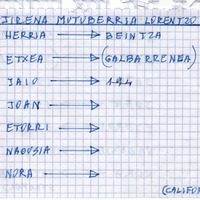 JIRENA MUTUBERRIA LORENTZO
HERRIA → BEINTZA
ETXEA → (GALBARRENEA)
JAIO → 194
JOAN →
ETORRI →
NAGUSIA →
NORA →
(CALIF